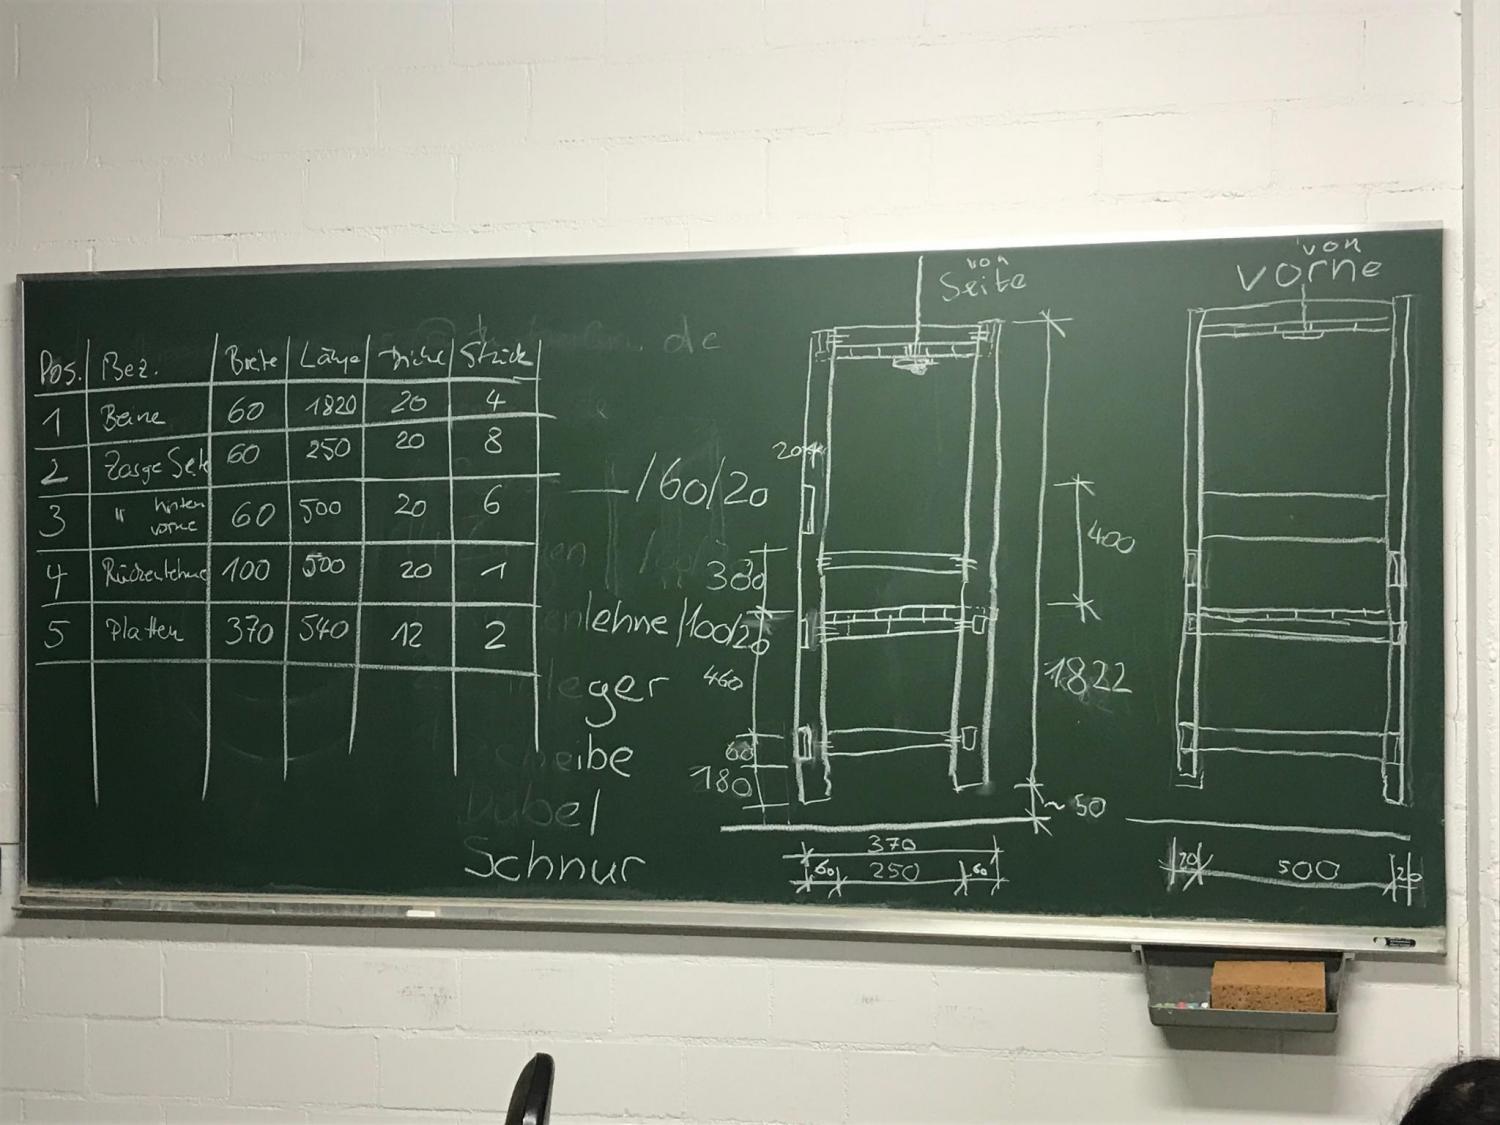 Pos. Bez. Breite Länge Dicke Stück
1 Beine 60 1820 20 4
2 Zarge Seite 60 250 20 8
3 " hinten vorne 60 500 20 6
4 Rückenlehne 100 500 20 1
5 Platten 370 540 12 2
de
/60/20
lehne/100/20
eger
eibe
Dübel
Schnur
von
Seite
20
300
460
60
180
400
1822
~ 50
370
60 250 60
von
vorne
20 500 20